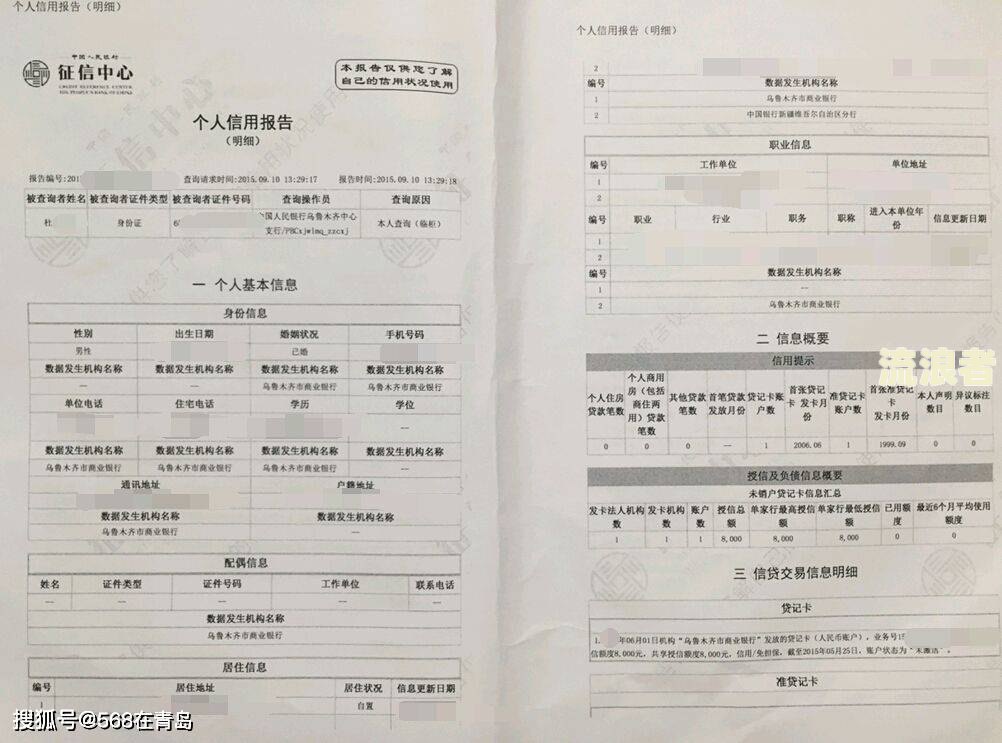 个人信用报告（明细）
中国人民银行
征信中心
CREDIT REFERENCE CENTER
THE PEOPLE'S BANK OF CHINA
本报告仅供您了解
自己的信用状况使用
个人信用报告
（明细）
报告编号:201 查询请求时间:2015.09.10 13:29:17 报告时间:2015.09.10 13:29:18
被查询者姓名 被查询者证件类型 被查询者证件号码 查询操作员 查询原因
杜 身份证 6 中国人民银行乌鲁木齐中心 本人查询（临柜）
支行/PBCxjwlmq_zzcxj
一 个人基本信息
身份信息
性别 出生日期 婚姻状况 手机号码
男性 已婚
数据发生机构名称 数据发生机构名称 数据发生机构名称 数据发生机构名称
— — 乌鲁木齐市商业银行 乌鲁木齐市商业银行
单位电话 住宅电话 学历 学位
—
数据发生机构名称 数据发生机构名称 数据发生机构名称 数据发生机构名称
乌鲁木齐市商业银行 乌鲁木齐市商业银行 乌鲁木齐市商业银行 —
通讯地址 户籍地址
数据发生机构名称 数据发生机构名称
乌鲁木齐市商业银行 —
配偶信息
姓名 证件类型 证件号码 工作单位 联系电话
— — — — —
数据发生机构名称
乌鲁木齐市商业银行
居住信息
编号 居住地址 居住状况 信息更新日期
1 自置
搜狐号@568在青岛
个人信用报告（明细）
2
编号 数据发生机构名称
1 乌鲁木齐市商业银行
2 中国银行新疆维吾尔自治区分行
职业信息
编号 工作单位 单位地址
1
2
编号 职业 行业 职务 职称 进入本单位年份 信息更新日期
1
2
编号 数据发生机构名称
1 —
2 乌鲁木齐市商业银行
二 信息概要
流浪者
信用提示
个人住房贷款笔数 个人商用房（包括商住两用）贷款笔数 其他贷款笔数 首笔贷款发放月份 贷记卡账户数 首张贷记卡 发卡月份 准贷记卡账户数 首张准贷记卡 发卡月份 本人声明数目 异议标注数目
0 0 0 — 1 2006.06 1 1999.09 0 0
授信及负债信息概要
未销户贷记卡信息汇总
发卡法人机构数 发卡机构数 账户数 授信总额 单家行最高授信额 单家行最低授信额 已用额度 最近6个月平均使用额度
1 1 1 8,000 8,000 8,000 0 0
三 信贷交易信息明细
贷记卡
1. 年06月01日机构“乌鲁木齐市商业银行”发放的贷记卡（人民币账户），业务号
信额度8,000元，共享授信额度8,000元，信用/免担保，截至2015年05月25日，账户状态为“未激活”。
准贷记卡